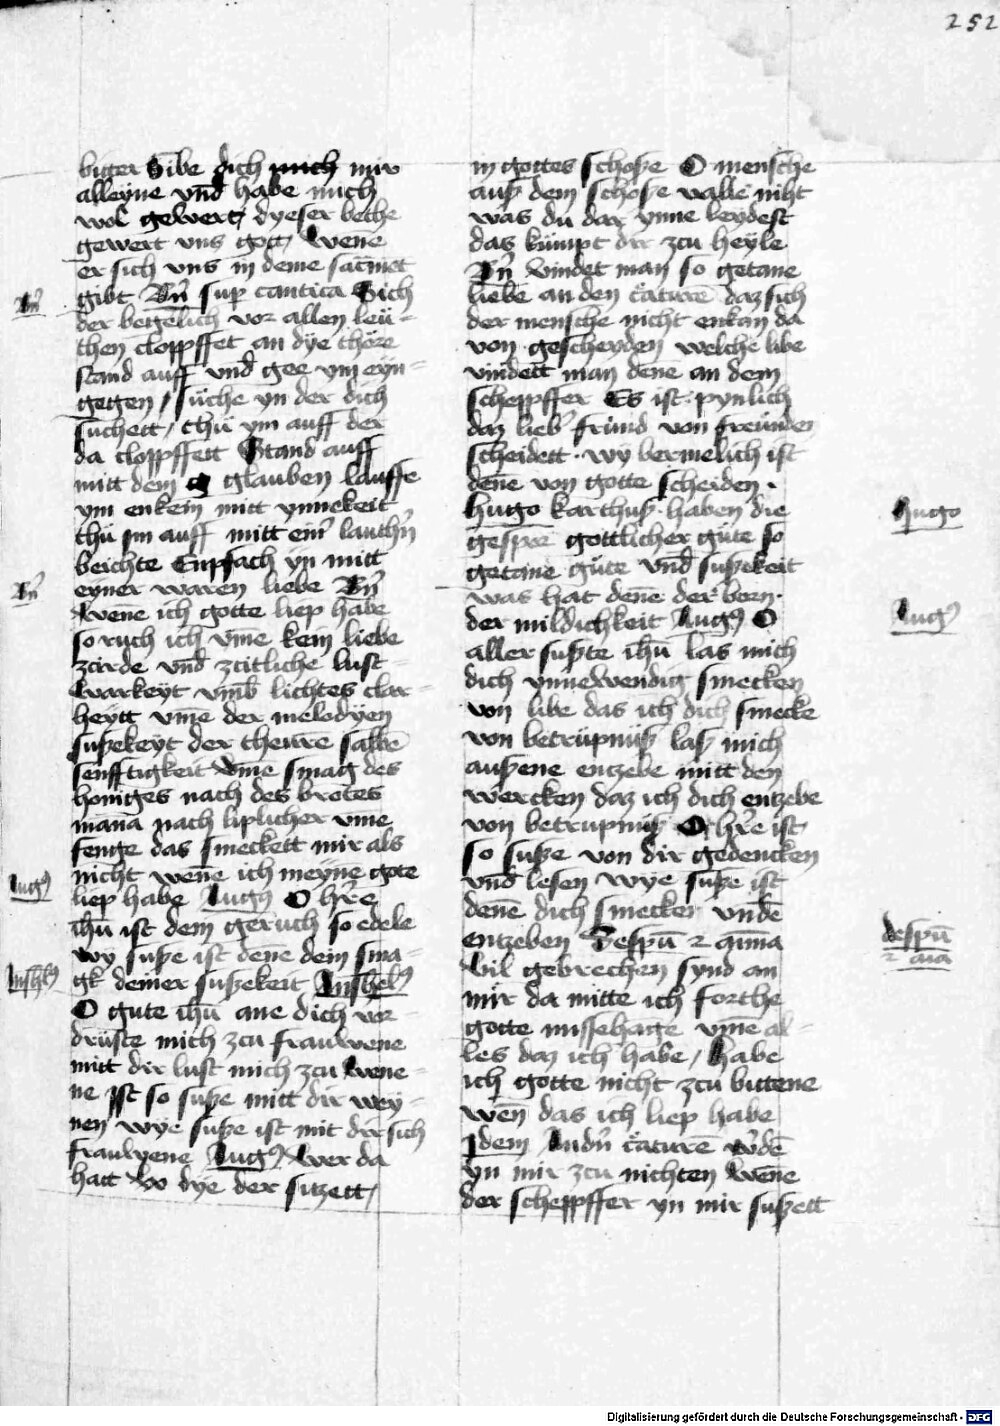 252
biter Gibe dich mich mir
alleyne vnd habe mich
wol gewert, dyeser bethe
gewert vns gott, Wene
er sich vns in deme sacmēt
Bn̄
gibt Bn̄ sup cantica Sich
der begēlich vor allen leü-
then cloppffet an dye thöre
stand auff vnd gee ym eyn-
gegen, süche yn der dich
suchett, thü ym auff der
da cloppffett Stand auff
mitt dem glauben lauffe
ym enkein mitt ynnekeit
thü ym auff mitt ein̄ lauthn̄
beichte Enpfach yn mitt
Bn̄
eyner waren liebe Bn̄
Wene ich gotte liep habe
so ruch ich vme kein liebe
zcirde vnd zcitliche lust
warkeyt vmb lichtes clar-
heytt vme der melodyen
sußekeyt der theure salbe
senfftigkeit vme smag des
honiges nach des brotes
mana nach liplicher vme
fenge das smeckett mir als
nicht wene ich meyne gote
Augꝰ
liep habe Augꝰ O hr̄e
ihū ist dem geruch so edele
wy suße ist dene dem sma-
Anshelꝰ
gk deiner sußekeit Anshelꝰ
O gute ihū ane dich vor-
drüste mich zcu frauwene
mitt dir lust mich zcu wene-
ne jst so suße mitt dir wey-
nen wye suße ist mit dir sich
frauwene Augꝰ Wer da
hatt wo dye der sitzett,
in gottes schoße O mensche
auß dem schoße valle niht
was du dar ynne leydest
das kümpt dir zcu heyle
Bn̄ vindet man so getane
liebe an den c̄aturē daz sich
der mensche nicht enkan da
von gescheyden welche libe
vindett man dene an dem
scheppffer Es ist pynlich
daz lieb fründ von freünden
scheidett. wy bermelich ist
dene von gotte scheiden.
Hugo
hugo karthuß. haben die
gespoꝛ gottlicher güte so
getane güte vnd sußekeit
was hat dene der born.
Augꝰ
der mildichkeit Augꝰ O
aller sußte ihū las mich
dich ynnewendig smecken
von libe das ich dich smecke
von betrüpnuß laß mich
außene entzebe mitt den
wercken daz ich dich entzebe
von betrupnuß O hr̄e ist
so suße von dir gedencken
vnd lesen wye suße ist
dene dich smecken vnde
despū
⁊ aīa
entzeben Despū ⁊ anīma
Vil gebrechen synd an
mir da mitte ich forthe
gotte missehage vme al-
les daz ich habe, Habe
ich gotte nicht zcu bittene
wen das ich liep habe
Jdem Andn̄ c̄aturē wdē
yn mir zcu nichten wene
der scheppffer yn mir sußett
Digitalisierung gefördert durch die Deutsche Forschungsgemeinschaft - DFG